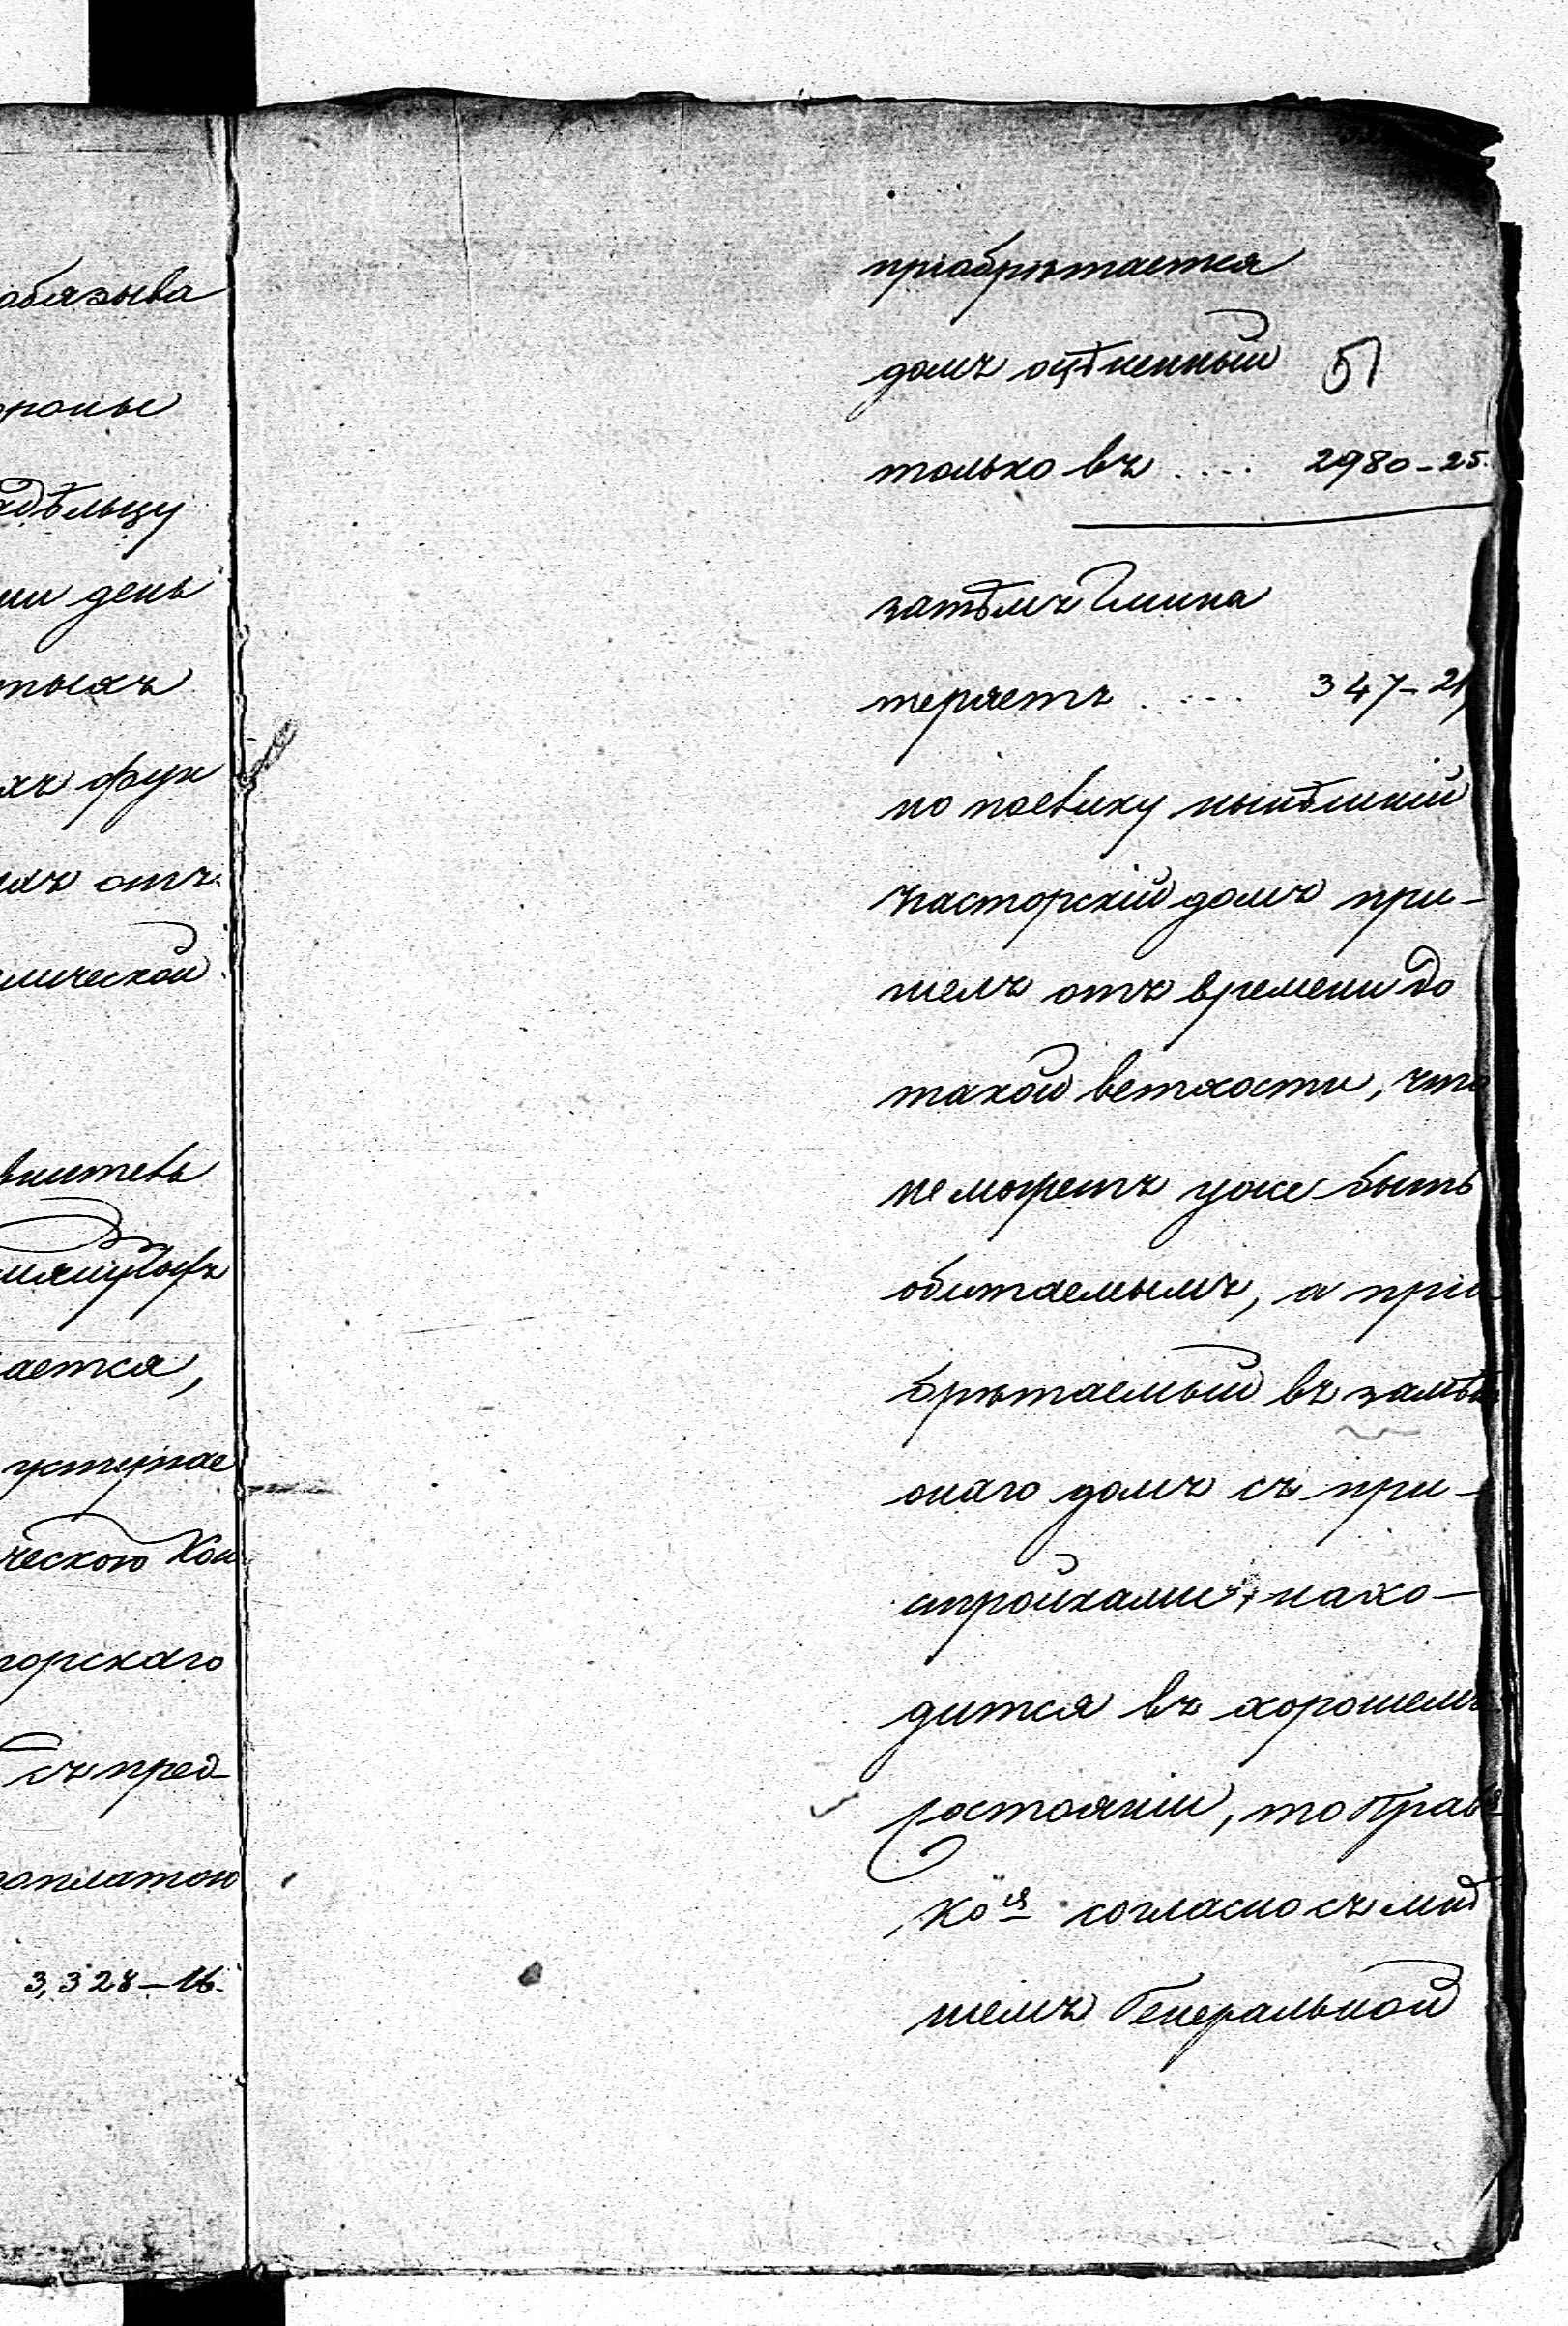 обязыва
роные
адѣльцу
ии день
тыхъ
хъ фун
отъ
мической
ается,
уступае
ческою Кон
торскаго
съ пред-
оплатою
3,328-16.
пріобрѣтается
домъ оцѣненный 51
только въ .... 2980-25.
затѣмъ Кмина
теряетъ .... 347-21,
но поелику нынѣшній
пасторскій домъ при-
шелъ отъ времени до
такой ветхости, что
не можетъ уже быть
обитаемымъ, а пріо
брѣтаемый въ замѣнъ
онаго домъ съ при-
стройками, нахо-
дится въ хорошемъ
состояніи, то Прав
Коія согласно съ мнѣ
ніемъ Генеральной